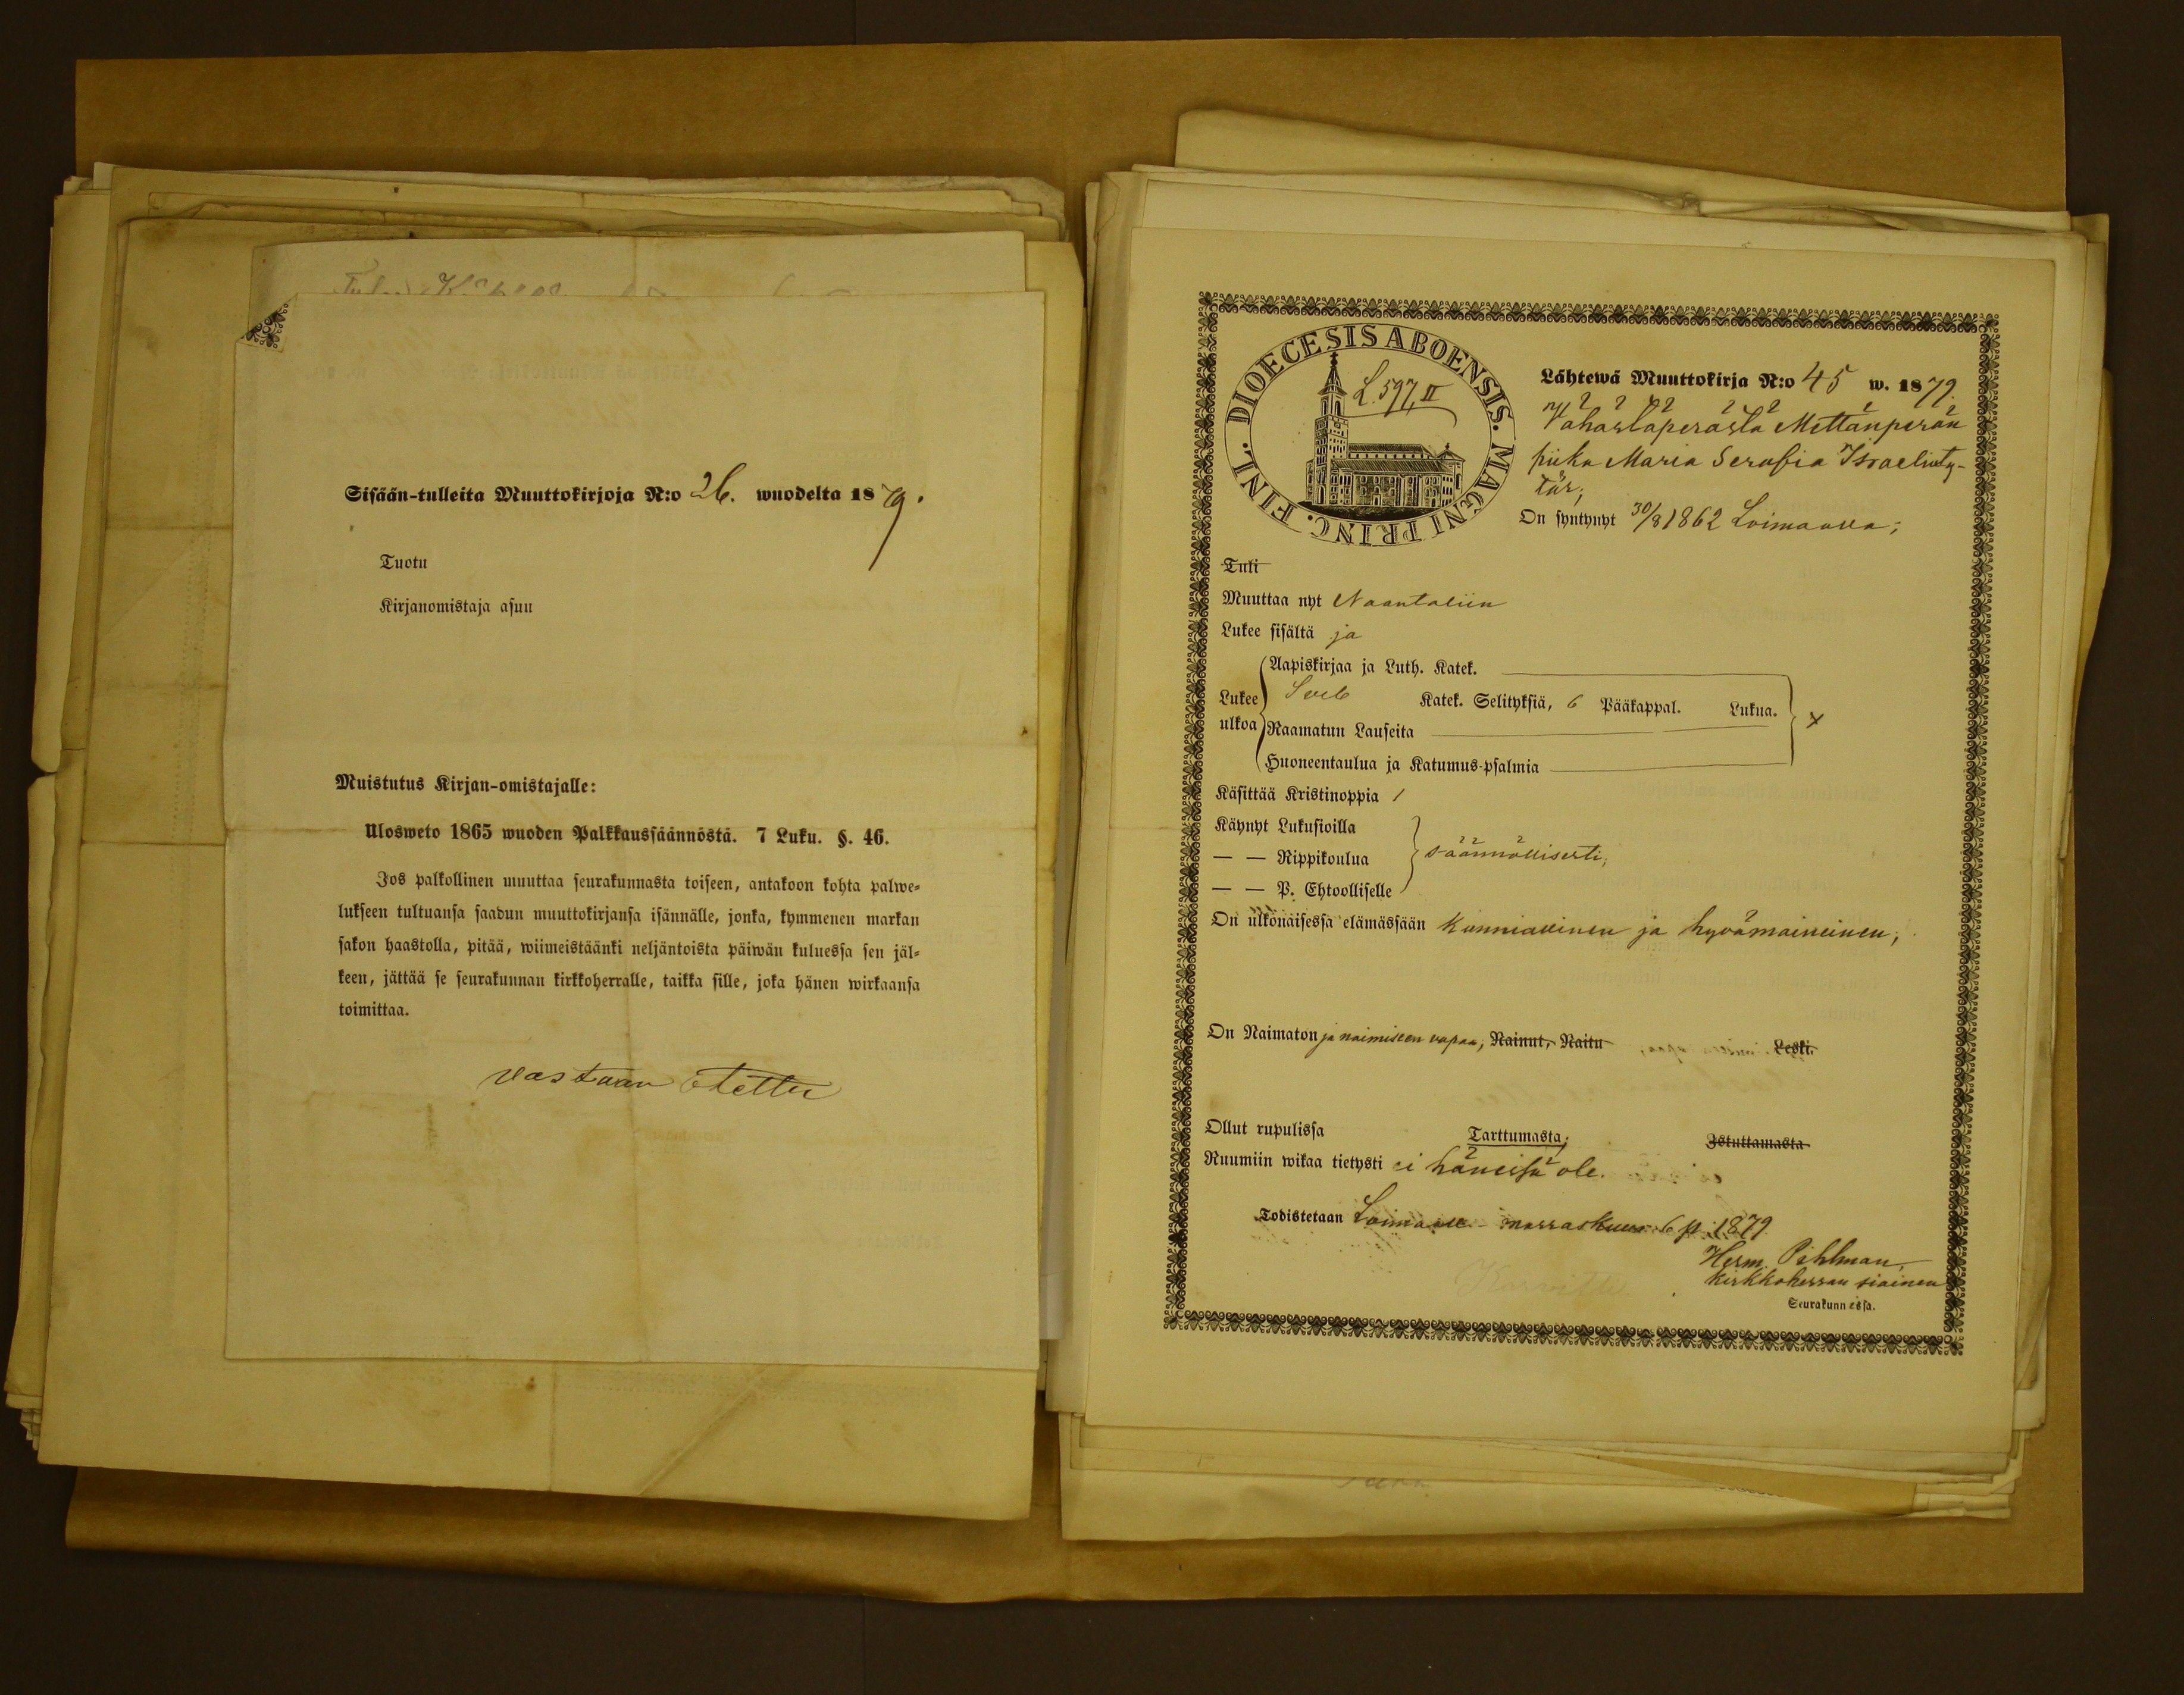 Sisään-tulleita Muuttokirjoja N:o 26. wuodelta 1879.
Tuotu
Kirjanomistaja asuu
Muistutus Kirjan-omistajalle:
Ulosweto 1865 wuoden Palkkaussäännöstä. 7 Luku. §. 46.
Jos palkollinen muuttaa seurakunnasta toiseen, antakoon kohta palwe-
lukseen tultuansa saadun muuttokirjansa isännälle, jonka, kymmenen markan
sakon haastolla, pitää, wiimeistäänki neljäntoista päiwän kuluessa sen jäl-
keen, jättää se seurakunnan kirkkoherralle, taikka sille, joka hänen wirkaansa
toimittaa.
vastaan otettu
DIOECESIS ABOENSIS. MAGNI PRINC. FINL.
L. 597, II
Lähtewä Muuttokirja N:o 45 w. 1879.
Vähästäperästä Mettänperän
piika Maria Serafia Israelinty-
tär;
On syntynyt 30/8 1862 Loimaalla;
Tuli
Muuttaa nyt Naantaliin
Lukee sisältä ja
Aapiskirjaa ja Luth. Katek.
Lukee ulkoa Sveb Katek. Selityksiä, 6 Pääkappal. Lukua. +
Raamatun Lauseita
Huoneentaulua ja Katumus-psalmia
Käsittää Kristinoppia /
Käynyt Lukusioilla
— — Rippikoulua säännöllisesti;
— — P. Ehtoolliselle
On ulkonaisessa elämässään kunniallinen ja hyvämaineinen;
On Naimaton ja naimiseen vapaa; Nainut, Naitu Leski.
Ollut rupulissa Tarttumasta; Istuttamasta
Ruumiin wikaa tietysti ei hänessä ole.
Todistetaan Loimaalla marraskuun 6 p. 1879.
Herm. Pihlman,
kirkkoherran siainen
Seurakunnassa.